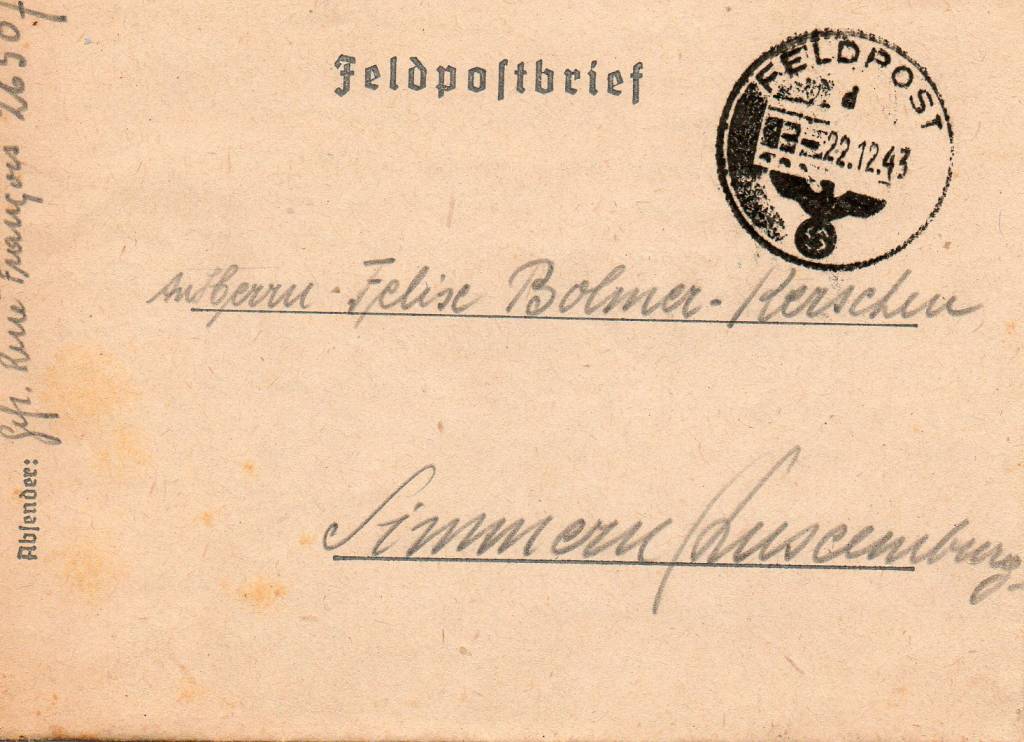 Feldpostbrief
FELDPOST
d
22.12.43
An Herrn Felix Bolmer-Kerschen
Simmern (Luxemburg
Absender: Gefr. Rene François 26507